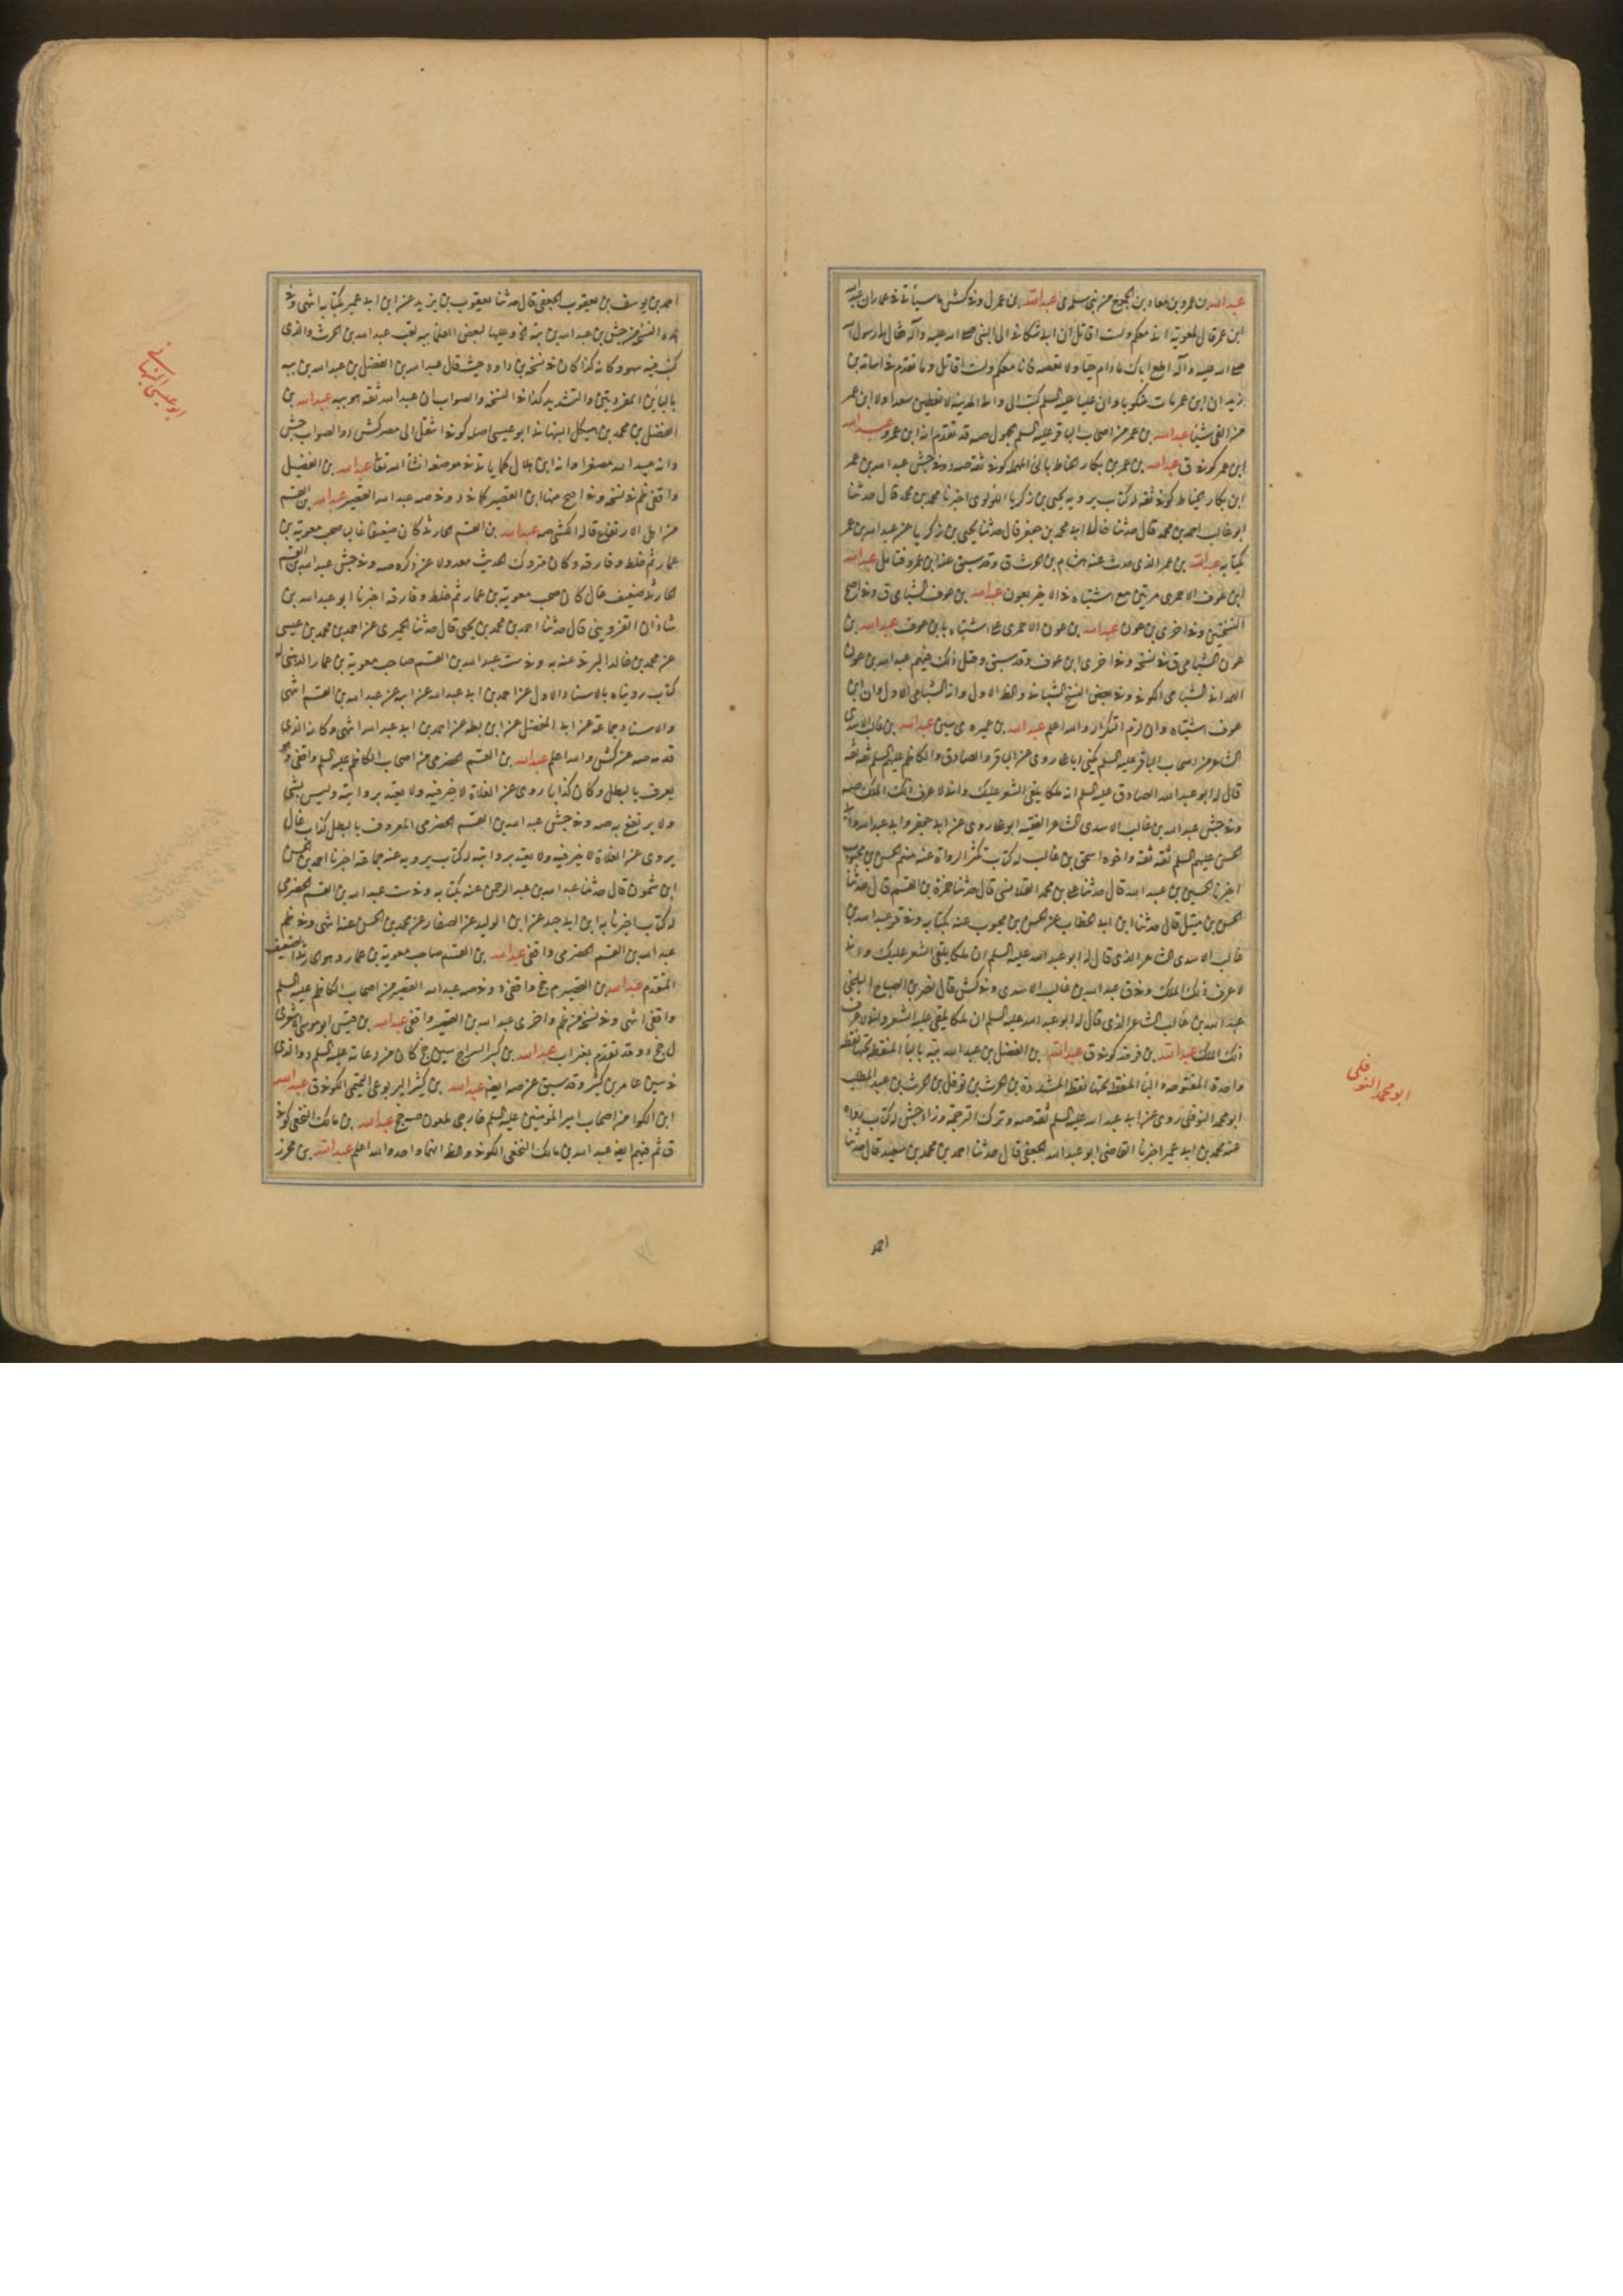 عبدالله بن عمرو بن معاذ بن الجموح من بني سلمة ى عبدالله بن عمر ل وفي كش ما سيأتي في عمار ان عبدالله
ابن عمر قال لمعوية انا معكم ولست اقاتل ان ابي شكاني الى النبي صلى الله عليه وآله فقال لي رسول الله
صلى الله عليه وآله اطع اباك مادام حيا ولا تعصه فانا معكم ولست اقاتل وما تقدم في اسامة بن
زيد ان ابن عمر مات منكوبا وان عليا عليه السلم كتب الى والي المدينة لا تعطين سعدا ولا ابن عمر
من الفي شيئا عبدالله بن عمر من اصحاب الباقر عليه السلم مجهول صه قد تقدم انه ابن عمرو عبدالله
ابن عمر كوفي ق عبدالله بن عمر بن بكار الحناط بالنون المهملة كوفي ثقة صه د وفي جش عبدالله بن عمر
ابن بكار الحناط كوفي ثقة له كتاب يرويه يحيى بن زكريا اللولوى اخبرنا محمد بن محمد قال حدثنا
ابو غالب احمد بن محمد قال حدثنا خال ابي محمد بن جعفر قال حدثنا يحيى بن زكريا عن عبدالله بن عمر
بكتابه عبدالله بن عمر الذى حدث عنه هشام بن الحرث ق وقد سبق عن ابن عمرو فتامل عبدالله
ابن عوف الاحمرى مرتين مع اشتباه في الاخير بعون عبدالله بن عوف الشبامى ق وفي اصح
النسختين وفي اخرى بن عون عبدالله بن عون الاحمرى على اشتباه بابن عوف عبدالله بن
عون الشبامى ق في نسخة وفي اخرى ابن عوف وقد سبق وقبل ذلك فيهم عبدالله بن عون
الشبامى الكوفي وفي بعض النسخ الشيباني والظ الاول وانه الشبامى الاول وان ابن
عوف اشتباه وان لزم التكرار والله اعلم عبدالله بن عميره ى سين عبدالله بن غالب الاسدى
الشاعر من اصحاب الباقر عليه السلم يكنى ابا على روى عن الباقر والصادق والكاظم عليهم السلم ثقة ثقة
قال له ابو عبدالله الصادق عليه السلم ان ملكا يلقى الشعر عليك وانى لاعرف ذلك الملك صه
وفي جش عبدالله بن غالب الاسدى الشاعر الفقيه ابو على روى عن ابي جعفر وابي عبدالله وابي
الحسن عليهم السلم ثقة ثقة واخوه اسحق بن غالب له كتاب تكثر الرواة عنه منهم الحسن بن محبوب
اخبرنا الحسين بن عبيد الله قال حدثنا على بن محمد القلانسى قال حدثنا حمزة بن القسم قال حدثنا
الحسن بن متيل قال حدثنا ابن ابي الخطاب عن الحسن بن محبوب عنه بكتابه وفي قر عبدالله بن
غالب الاسدى الشاعر الذى قال له ابو عبدالله عليه السلم ان ملكا يلقى الشعر عليك وانى
لاعرف ذلك الملك وفي ق عبدالله بن غالب الاسدى وفي كش قال نصر بن الصباح البلخى
عبدالله بن غالب الشاعر الذى قال له ابو عبدالله عليه السلم ان ملكا يلقى عليه الشعر وانى لاعرف
ذلك الملك عبدالله بن فرقد كوفي ق عبدالله بن الفضل بن عبدالله ببه بالباء المنقطة تحتها نقطة
واحدة المفتوحه والباء المنقطة تحتها نقطة المشددة بن الحرث بن نوفل بن الحرث بن عبد المطلب
ابو محمد النوفلى روى عن ابي عبدالله عليه السلم ثقة صه وترك الترجمة وزاد جش له كتاب رواه
عنه محمد بن ابي عمير اخبرنا القاضى ابو عبدالله الجعفى قال حدثنا احمد بن محمد بن سعيد قال حدثنا
ابو محمد النوفلى
احمد
احمد بن يوسف بن يعقوب الجعفى قال حدثنا يعقوب بن يزيد عن ابن ابي عمير بكتابه انتهى وفي
هذه النسخ من جش بن عبدالله بن ببه وعليها لبعض العلماء ببه لقب عبدالله بن الحرث والذى
كتب فيه سهو وكانه كذا كان في نسخة بن داود حيث قال عبدالله بن الفضل بن عبدالله بن ببه
بالبائين المفردتين والتشديد كذا في النسخة والصواب ان عبدالله ثقة هو ببه عبدالله بن
الفضل بن محمد بن هيكل النبهاني ابو عيسى اصله كوفي انتقل الى مصر كش د والصواب جش
وانه عبيد الله مصغرا وانه ابن هلال كما ياتي في موضعه انشاء الله تعالى عبدالله بن الفضيل
واقفى ظم في نسخة وفي اصح منها ابن القصير كما في د وفي صه عبدالله القصير عبدالله بن القسم
من اهل الارتفاع قاله الكشى صه عبدالله بن القسم الحارثى كان ضعيفا غاليا صحب معوية بن
عمار ثم خلط وفارقه وكان متروك الحديث معدولا عن ذكره صه وفي جش عبدالله بن القسم
الحارثى ضعيف غال كان صحب معوية بن عمار ثم خلط وفارقه اخبرنا ابو عبدالله بن
شاذان القزوينى قال حدثنا احمد بن محمد بن يحيى قال حدثنا الحميرى عن احمد بن محمد بن عيسى
عن محمد بن خالد البرقى عنه به وفي ست عبدالله بن القسم صاحب معوية بن عمار الدهنى له
كتاب رويناه بالاسناد الاول عن احمد بن ابي عبدالله عن ابيه عن عبدالله بن القسم انتهى
والاسناد جماعة عن ابي المفضل عن ابن بطة عن احمد بن ابي عبدالله انتهى وكانه الذى
قدمه صه عن كش والله اعلم عبدالله بن القسم الحضرمى من اصحاب الكاظم عليه السلم واقفى وهو
يعرف بالبطل وكان كذابا روى عن الغلاة لا خير فيه ولا يعتد بروايته وليس بشئ
ولا يرتفع به صه وفي جش عبدالله بن القسم الحضرمى المعروف بالبطل كذاب غال
يروى عن الغلاة لا خير فيه ولا يعتد بروايته له كتاب يرويه عنه جماعة اخبرنا احمد بن الحسن
ابن شمون قال حدثنا عبدالله بن عبد الرحمن عنه بكتابه وفي ست عبدالله بن القسم الحضرمى
له كتاب اخبرنا به ابن ابي جيد عن ابن الوليد عن الصفار عن محمد بن الحسن عنه انتهى وفي ظم
عبدالله بن القسم الحضرمى واقفى عبدالله بن القسم صاحب معوية بن عمار د وهو الحارثى الضعيف
المتقدم عبدالله بن القصير م جخ واقفى د وفي صه عبدالله القصير من اصحاب الكاظم عليه السلم
واقفى انتهى وفي نسخة من ظم واخرى عبدالله بن القصير واقفى عبدالله بن قيس ابو موسى الاشعرى
ل جخ د وقد تقدم بغراب عبدالله بن كبير السراج سين جخ كان من دعاته عليه السلم د والذى
في سين عامر بن كثير وقد سبق عن صه ايضا عبدالله بن كثير اليربوعى التميمى الكوفي ق عبدالله
ابن الكوا من اصحاب امير المؤمنين عليه السلم خارجى ملعون صه جخ عبدالله بن مالك النخعى كوفي
ق ثم فيهم ايضا عبدالله بن مالك النخعى الكوفي والظ انهما واحد والله اعلم عبدالله بن محرز
ابو عيسى النبهانى